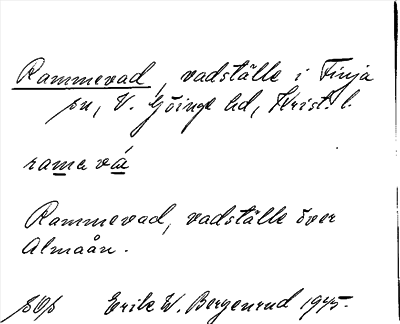 Rammevad, vadställe i Finja
sn, V. Göinge hd, Krist. l.
ramevá
Rammevad, vadställe över
Almaån.
Erik W. Bergenrud 1945.